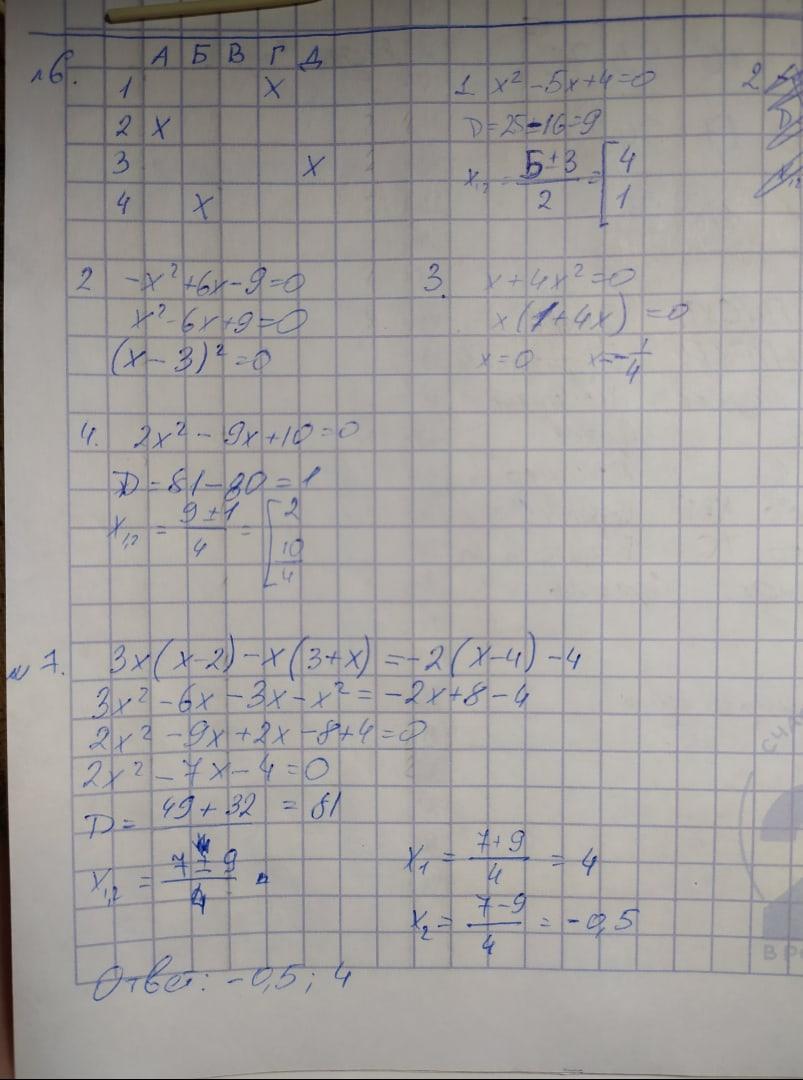 №6. А Б В Г Д
1 X
2 X
3 X
4 X
1. x² - 5x + 4 = 0
D = 25 - 16 = 9
x₁,₂ = (5 ± 3)/2 = [4
1
2
2 -x² + 6x - 9 = 0
x² - 6x + 9 = 0
(x - 3)² = 0
3. x + 4x² = 0
x(1 + 4x) = 0
x = 0 x = -1/4
4. 2x² - 9x + 10 = 0
D = 81 - 80 = 1
x₁,₂ = (9 ± 1)/4 = [2
10/4
№7. 3x(x - 2) - x(3 + x) = -2(x - 4) - 4
3x² - 6x - 3x - x² = -2x + 8 - 4
2x² - 9x + 2x - 8 + 4 = 0
2x² - 7x - 4 = 0
D = 49 + 32 = 81
x₁,₂ = (7 ± 9)/4
x₁ = (7 + 9)/4 = 4
x₂ = (7 - 9)/4 = -0,5
Ответ: -0,5; 4